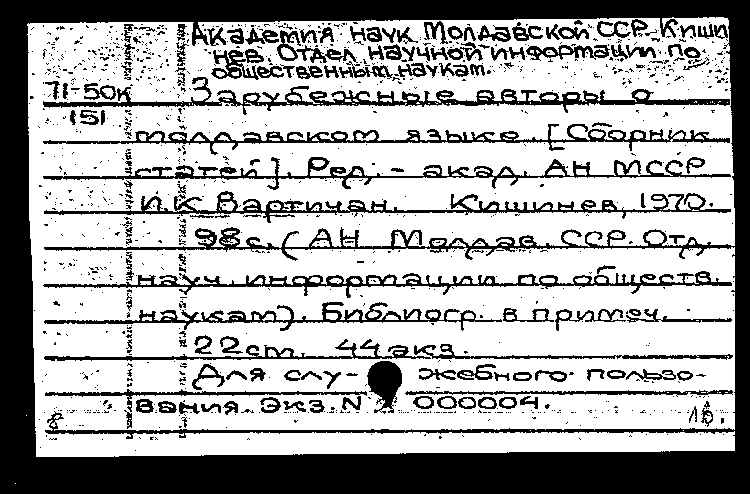 Академия наук Молдавской ССР. Киши
нев. Отдел научной информации по
общественным наукам.
71-50к Зарубежные авторы о
151
молдавском языке. [Сборник
статей]. Ред. - акад. АН МССР
И.К. Вартичан. Кишинев, 1970.
98с. (АН Молдав. ССР. Отд.
науч. информации по обществ.
наукам). Библиогр. в примеч.
22ст. 44 экз.
Для слу- жебного пользо-
вания. Экз. N 000004.